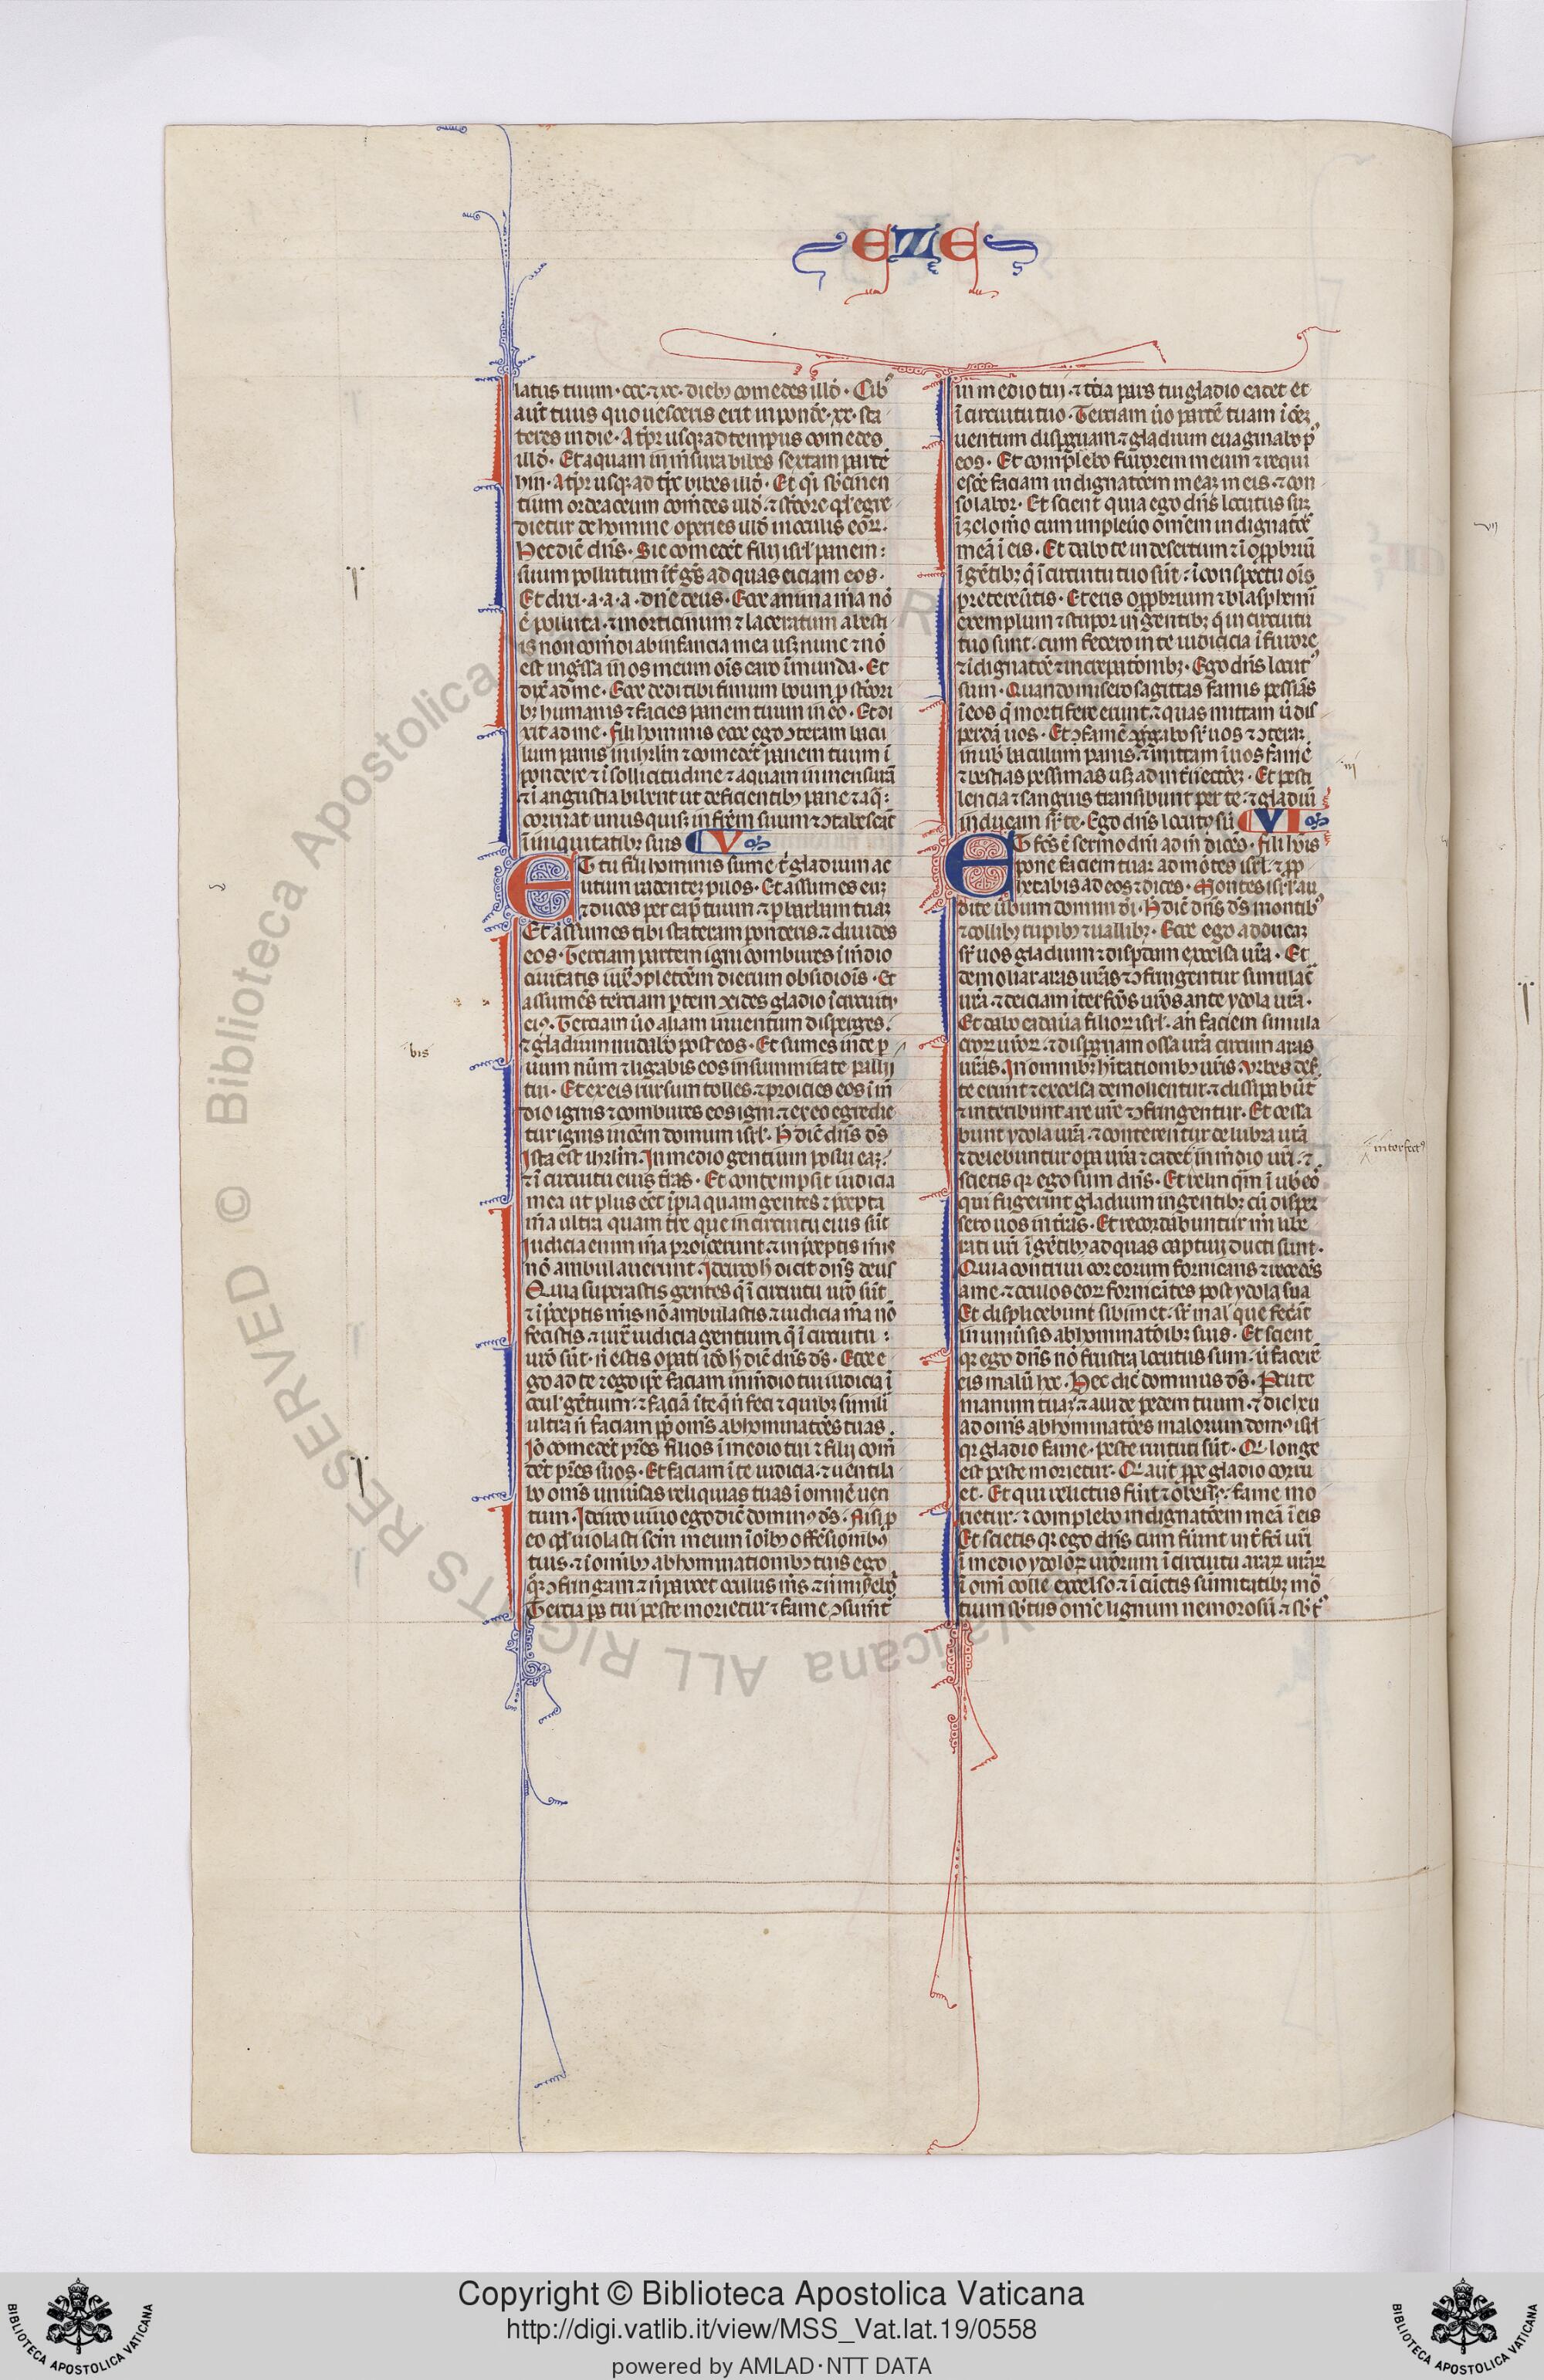 EZE
latus tuum · ccc · ⁊ xc · dieb; comedes illd̄ · Cib⁹
aut̄ tuus quo uesceris erit in pondē · xx · sta
teres in die · A tp̄r usq; ad tempus comedes
illd̄ · Et aquam in mēsura bibes sextam partē
hin · A tp̄r usq; ad tp̄s bibes illd̄ · Et q̄i sb̄cinen
tium ordeaceum comēdes illd̄ · ⁊ stc̄ore qd̄ egre
dietur de homine operies illd̄ in oculis eor̄ ·
Hec dic̄ dn̄s · Sic comedēt filii isrl̄ panem
suum pollutum īt̄ gn̄s ad quas eiciam eos ·
Et dixi · a · a · a · dn̄e deus · Ecce anima m̄a nō
ē polluta · ⁊ morticinum ⁊ laceratum a besti
is non comēdi ab infancia mea usq; nunc ⁊ nō
est ingssa in os meum oīs caro īmunda · Et
dix̄ ad me · Ecce dedi tibi fimum boum p̄ stc̄ori
b; humanis ⁊ facies panem tuum in eo · Et di
xit ad me · fili hominis ecce ego ɔteram bacu
lum panis in ihrlm̄ ⁊ comedēt panem tuum ī
pondere ⁊ ī sollicitudine ⁊ aquam in mensura
⁊ ī angustia bibent ut deficientib; pane ⁊ aq̄
corruat unusquisq; in frēm suum ⁊ ɔtabescāt
ī iniquitatib; suis V
ET tu fili hominis sume t̄ gladium ac
utum radentez pilos · Et assumes euz
⁊ duces per cap̄ tuum · ⁊ p̄ barbam tuaz
Et assumes tibi stateram ponderis · ⁊ diuides
eos · Terciam partem igni combures ī mēdio
ciuitatis iux̄ ɔpletoēm dierum obsidiois · Et
assumēs terciam p̄tem ɔcides gladio ī circuitu
ei⁹ · Terciam ūo aliam in uentum disperges ·
⁊ gladium nudabo post eos · Et sumes inde p
uum num̄ ⁊ ligabis eos in summitate pallij
tui · Et ex eis rursum tolles · ⁊ proicies eos ī m̄
dio ignis ⁊ combures eos igni · ⁊ ex eo egredie
tur ignis in oēm domum isrl̄ · H̄ dic̄ dn̄s ds̄
Ista est ihrlm̄ · In medio gentium posui eaz
⁊ ī circuitu eius tr̄as · Et contempsit iudicia
mea ut plus eēt īpia quam gentes ⁊ p̄cepta
m̄a ultra quam tr̄e que in circuitu eius sūt
Iudicia enim m̄a proiecerunt · ⁊ in p̄ceptis m̄is
nō ambulauerunt · Idcirco h̄ dicit dn̄s deus
Quia superastis gentes q̄ ī circuitu ur̄o sūt
⁊ ī p̄ceptis m̄is nō ambulastis · ⁊ iudicia m̄a nō
fecistis · ⁊ iux̄ iudicia gentium q̄ ī circuitu
ur̄o sūt · n̄ estis opati · icō h̄ dic̄ dn̄s ds̄ · Ecce e
go ad te ⁊ ego ip̄e faciam in mēdio tui iudicia ī
ocul' gētium · ⁊ faciā ī te q̄ n̄ feci ⁊ quib; simili
ultra n̄ faciam pp̄ omīs abhominatōes tuas ·
Iō comedēt pr̄es filios ī medio tui ⁊ filij com̄
dēt pr̄es suos · Et faciam ī te iudicia · ⁊ uentila
bo omīs uniūsas reliquias tuas ī omnē uen
tum · Idcirco uiuo ego dic̄ domin⁹ ds̄ · Nisi p̄
eo qd̄ uiolasti scm̄ meum ī oīb; offēsionib;
tuis · ⁊ ī omīb; abhominationib; tuis ego
q̄; ɔfringam · ⁊ n̄ parcet oculus m̄s · ⁊ n̄ misēbo
Tercia ps̄ tui peste morietur · ⁊ fame ɔsumēt
in medio tui · ⁊ tc̄ia pars tui gladio cadet ēt
ī circuitu tuo · Terciam ūo partē tuam ī oēz
uentum dispgam · ⁊ gladium euaginabo p⁹
eos · Et complebo furorem meum ⁊ requi
escē faciam indignatōem meaz in eis · ⁊ con
solabor · Et scient quia ego dn̄s locutus suz
ī zelo m̄o cum impleūo om̄em indignatōē
meā ī eis · Et dabo te in desertum · ⁊ ī opp̄briū
ī gētib; q̄ ī circuitu tuo sūt · ⁊ ī conspectu oīs
pretereūtis · Et eris opp̄brium ⁊ blasphemi
exemplum ⁊ stupor in gentib; q̄ in circuitu
tuo sunt · cum fecero in te iudicicia ī furore
⁊ ī dignatōē ⁊ increpatōnib; · Ego dn̄s locut⁹
sum · Quando misero sagittas famis pessiās
ī eos q̄ mortifere erunt · ⁊ quas mittam ū dis
perdā uos · Et ɔ famē ɔgregabo sr̄ uos ⁊ ɔteraz
in ub̄ baculum panis · ⁊ inmittam ī uos famē
⁊ bestias pessimas usq; ad int̄necōez · Et pesti
lencia ⁊ sanguis transibunt per te · ⁊ gladiū
inducam sr̄ te · Ego dn̄s locut⁹ sū VI
ET fc̄s ē sermo dn̄i ad m̄ dicēs · fili hois
pone faciem tuaz ad mōtes isrl̄ · ⁊ pp
hetabis ad eos ⁊ dices · Montes isrl̄ au
dite ūbum domini dei · H̄ dic̄ dn̄s ds̄ montib⁹
⁊ collib; rupib; ⁊ uallib; · Ecce ego adducaz
sr̄ uos gladium ⁊ disp̄dam excelsa ur̄a · Et
demoliar aras ur̄as ⁊ ɔfringentur simulac̄
ur̄a · ⁊ deiciam īterfcōs ur̄os ante ydola ur̄a ·
Et dabo cadaūa filior̄ isrl̄ · an̄ faciem simula
cror̄ ur̄or̄ · ⁊ dispgam ossa ur̄a circum aras
ur̄as · In omnib; hitationib; ur̄is · Vrbes des̄
te erunt ⁊ excelsa demolientur · ⁊ dissipabūt
⁊ interibunt are ur̄e ⁊ ɔfringentur · Et cessa
bunt ydola ur̄a · ⁊ conterentur delubra ur̄a
⁊ delebuntur opa ur̄a ⁊ cadet in mēdio ur̄i · ⁊
scietis qr̄ ego sum dn̄s · Et relinqm̄ ī uob̄ eō
qui fugerint gladium in gentib; cū disper
sero uos in tr̄as · Et recordabuntur m̄i libe
rati ur̄i ī gētib; ad quas captiui ducti sunt ·
Quia contriui cor eorum fornicans ⁊ recedēs
a me · ⁊ oculos eor̄ fornicātes post ydola sua
Et displicebunt sibimet · sr̄ mal' que fecāt
in uniūsis abhominatōib; suis · Et scient
qr̄ ego dn̄s nō frustra locutus sum · ū facerē
eis malū hoc · Hec dic̄ dominus ds̄ · Pcute
manum tuaz · ⁊ allide pedem tuum · ⁊ dic heu
ad omīs abhominatōes malorum dom⁹ isrl̄
qr̄ gladio fame · peste ruituri sūt · Qi longe
est peste morietur · Qi aut̄ ppe gladio corru
et · Et qui relictus fūit ⁊ obsess⁹ · fame mo
rietur · ⁊ complebo indignatōem meā ī eis
Et scietis qr̄ ego dn̄s cum fūint int̄fc̄i ur̄i
ī medio ydolor̄ ur̄orum ī circuitu arar̄ ur̄ar̄
ī omī colle excelso · ⁊ ī cūctis sūmitatib; mō
tium sb̄tus om̄e lignum nemorosū · ⁊ sb̄t⁹
bis
iij
interfect⁹
vij
Biblioteca Apostolica Vaticana ALL RIGHTS RESERVED ©
Copyright © Biblioteca Apostolica Vaticana
http://digi.vatlib.it/view/MSS_Vat.lat.19/0558
powered by AMLAD·NTT DATA
BIBLIOTECA APOSTOLICA VATICANA
BIBLIOTECA APOSTOLICA VATICANA